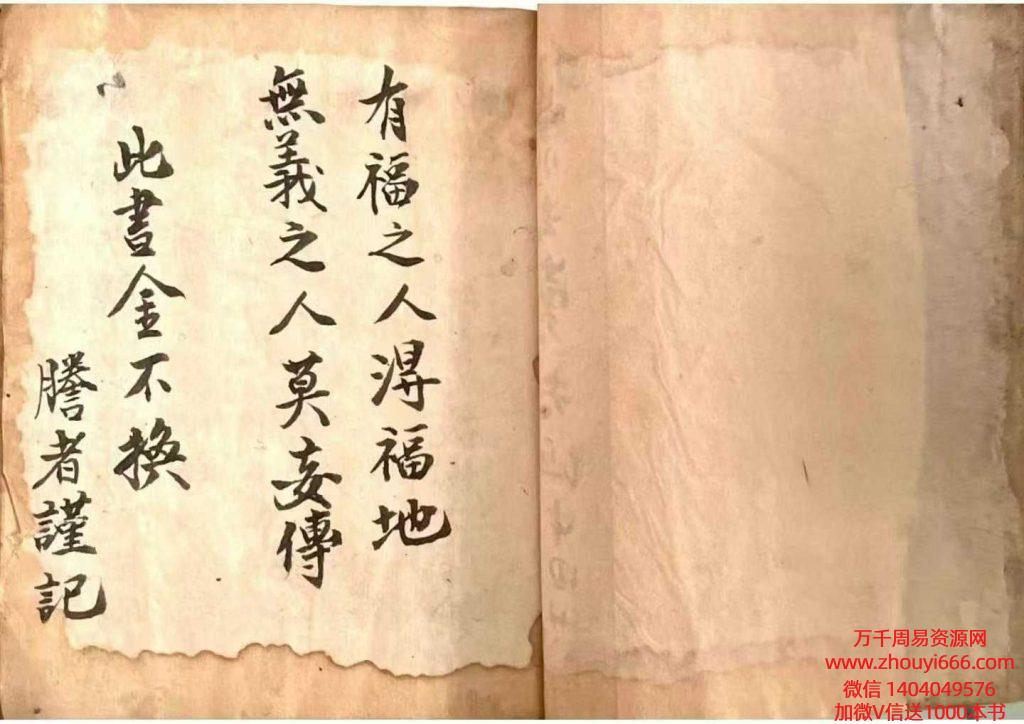 有福之人淂福地
無義之人莫妄傳
此書金不換
謄者謹記
万千周易资源网
www.zhouyi666.com
微信 1404049576
加微V信送1000本书